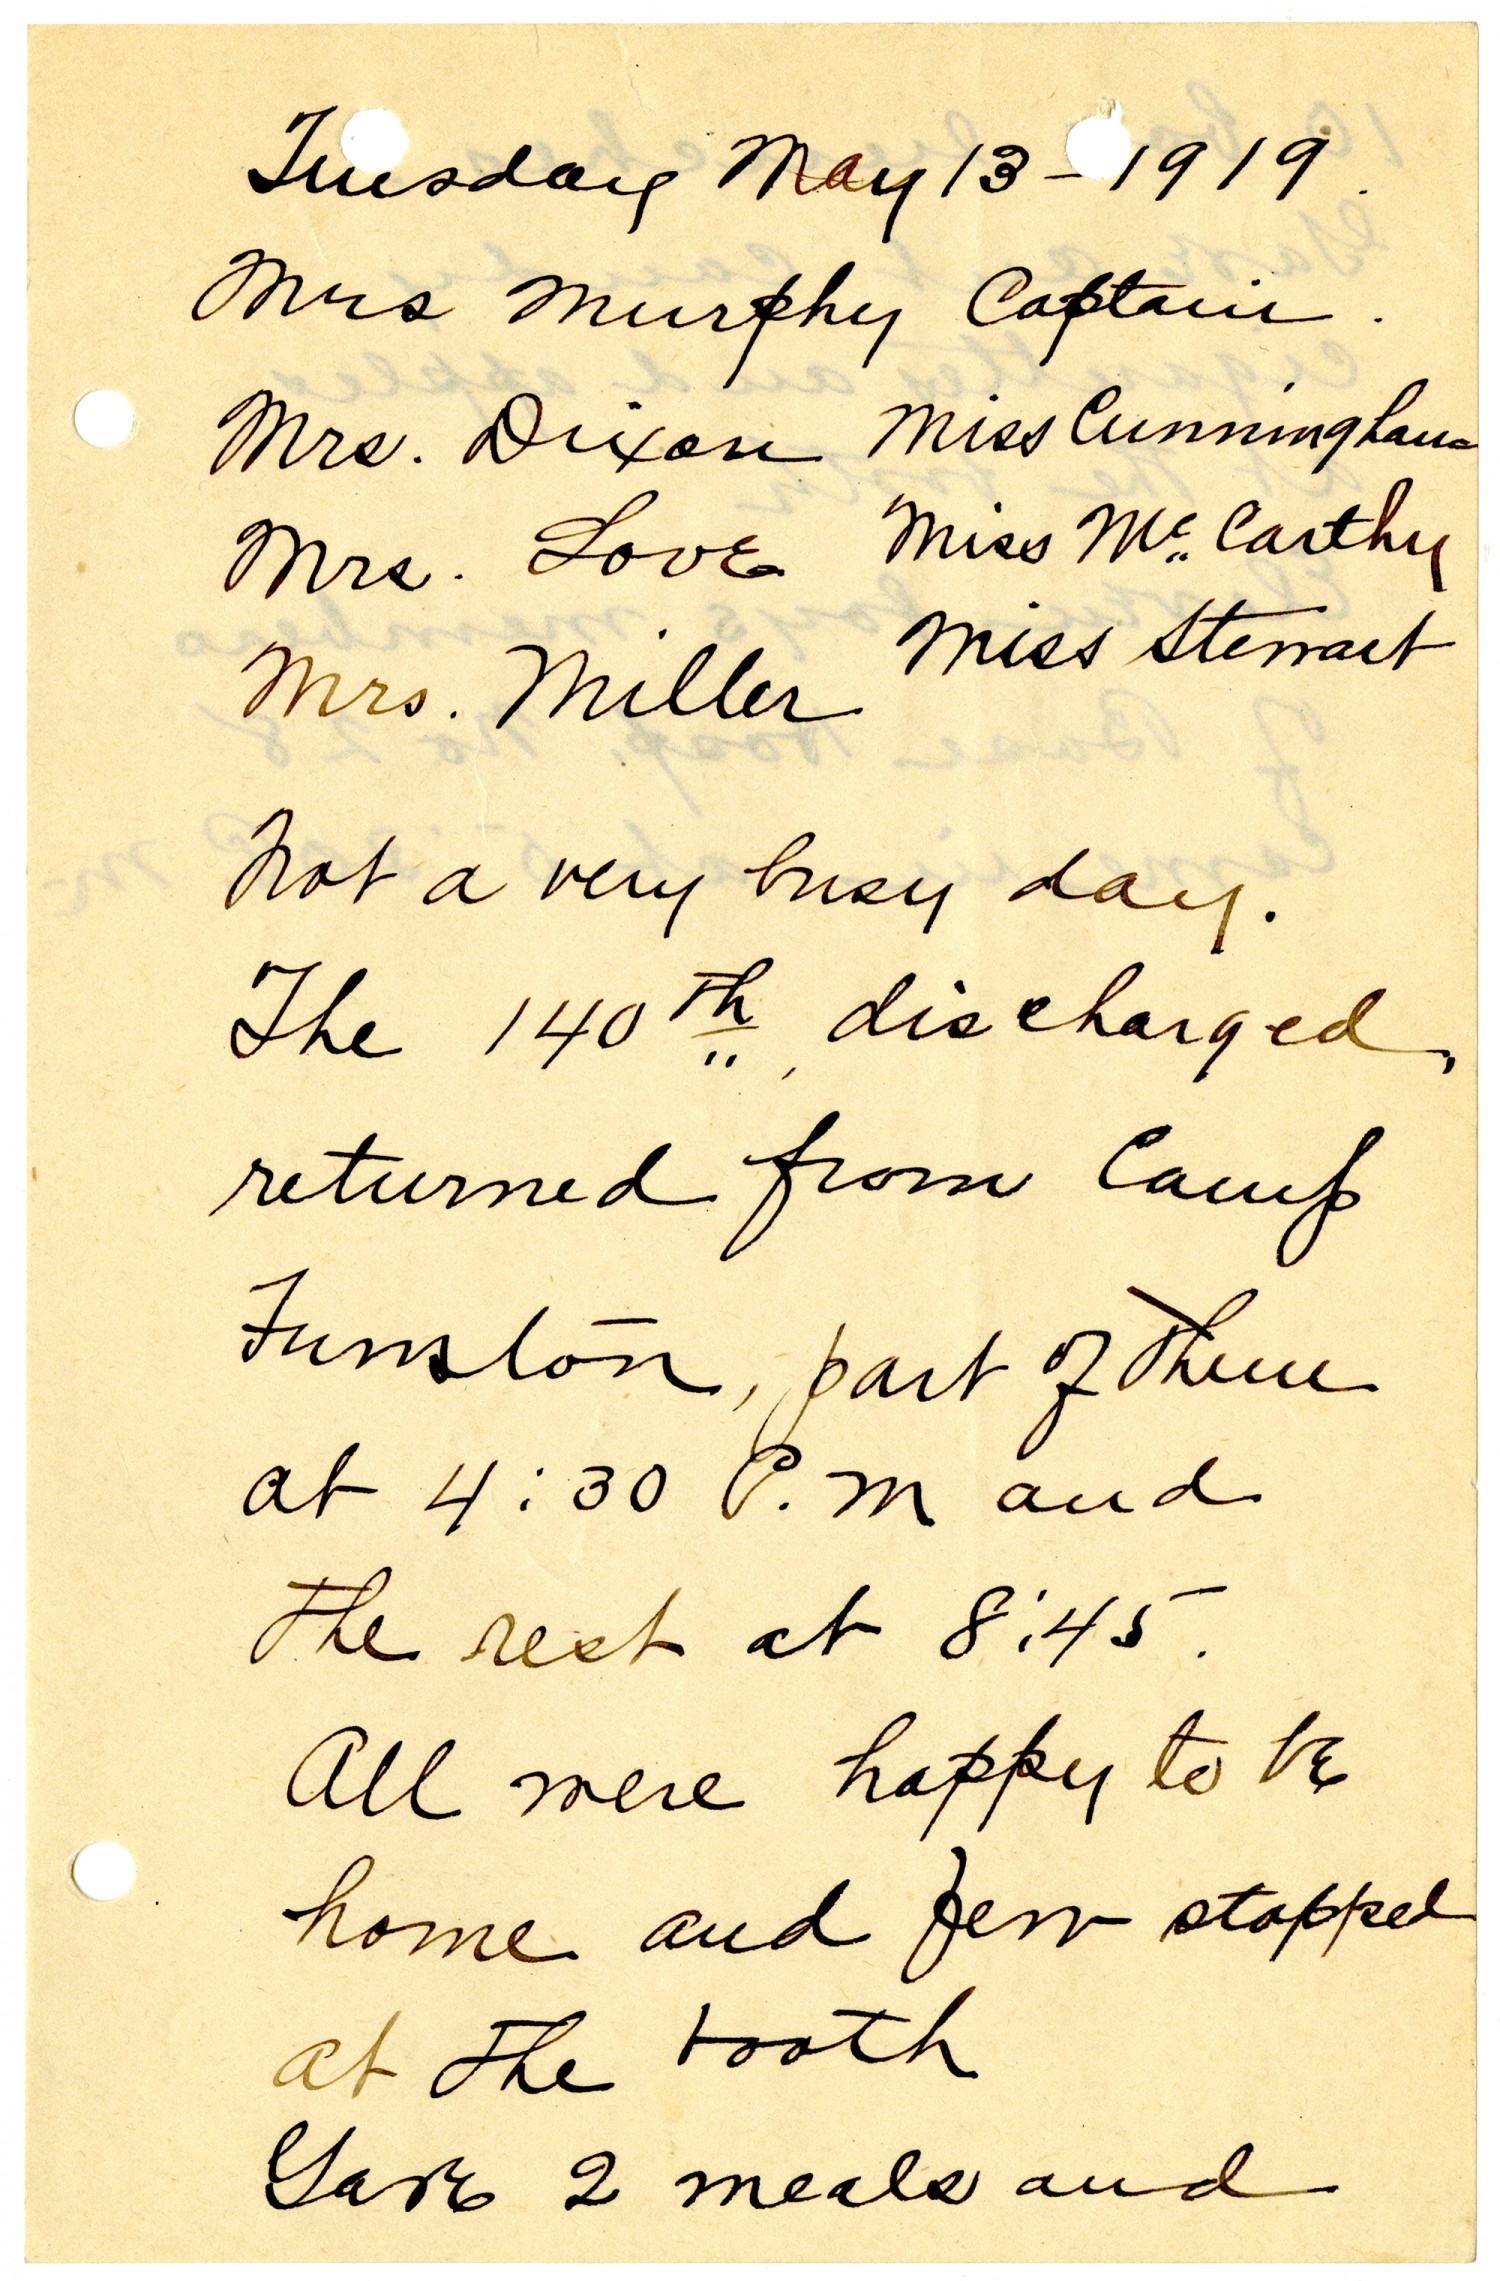 Tuesday May 13 - 1919.
Mrs Murphy Captain.
Mrs. Dixon Miss Cunningham
Mrs. Love Miss Mc. Carthy
Mrs. Miller Miss Stewart
Not a very busy day.
The 140th, discharged,
returned from Camp
Funston, part of them
at 4:30 P.M and
the rest at 8:45.
All were happy to be
home and few stopped
at the booth
Gave 2 meals and